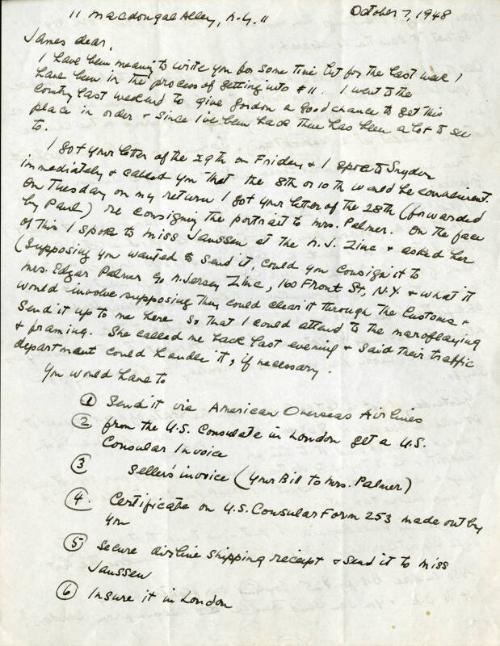 11 Macdougal Alley, N.Y. 11
October 7, 1948
James dear,
I have been meaning to write you for some time but for the last week I
have been in the process of getting into #11. I went to the
country last weekend to give Gordon a good chance to get this
place in order + since I've been back there has been a lot to see
to.
I got your letter of the 29th on Friday + I spoke to Snyder
immediately + cabled you that the 8th or 10th would be convenient.
On Tuesday on my return I got your letter of the 28th (forwarded
by Paul) re consigning the portrait to Mrs. Palmer. On the face
of this I spoke to Miss Janssen at the N.J. Zinc + asked her
(supposing you wanted to send it, could you consign it to
Mrs. Edgar Palmer c/o N. Jersey Zinc, 160 Front St, N.Y. + what it
would involve supposing they could clear it through the Customs +
send it up to me here so that I could attend to the maroflaying
+ framing. She called me back last evening + said their traffic
department could handle it, if necessary.
You would have to
① Send it via American Overseas Airlines
② From the U.S. Consulate in London get a U.S.
Consular Invoice
③ Seller's invoice (your Bill to Mrs. Palmer)
④ Certificate on U.S. Consular Form 253 made out by
you
⑤ Secure airline shipping receipt + send it to Miss
Janssen
⑥ Insure it in London